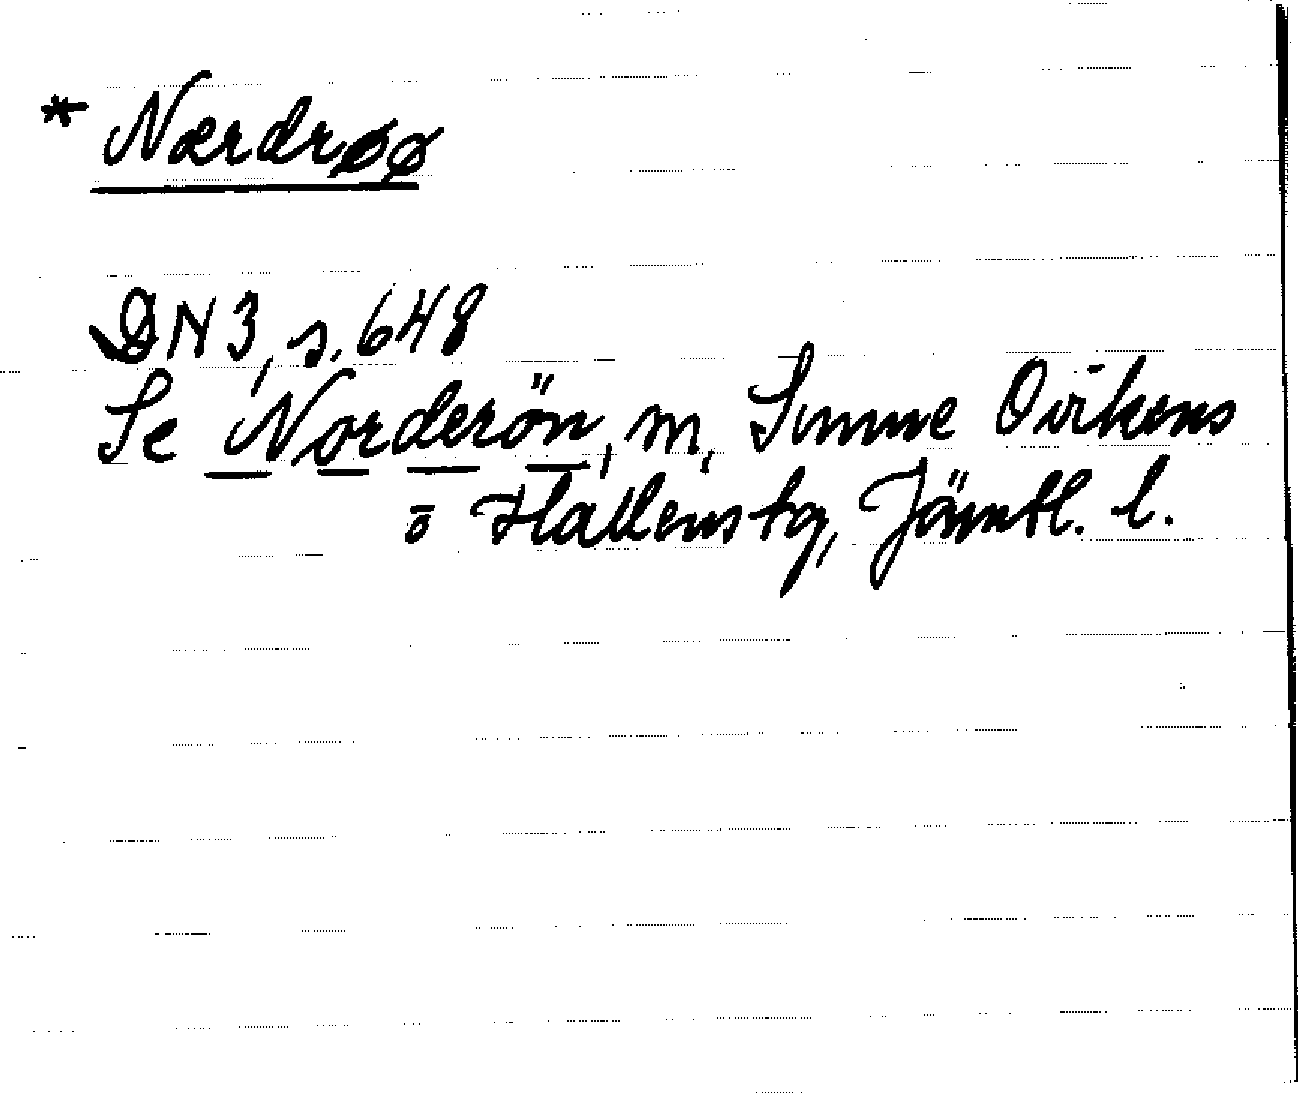 * Nærdrøø
DN 3, s. 648
Se Norderön, m, Sunne Ovikens
o Hallens tg, Jämtl. l.